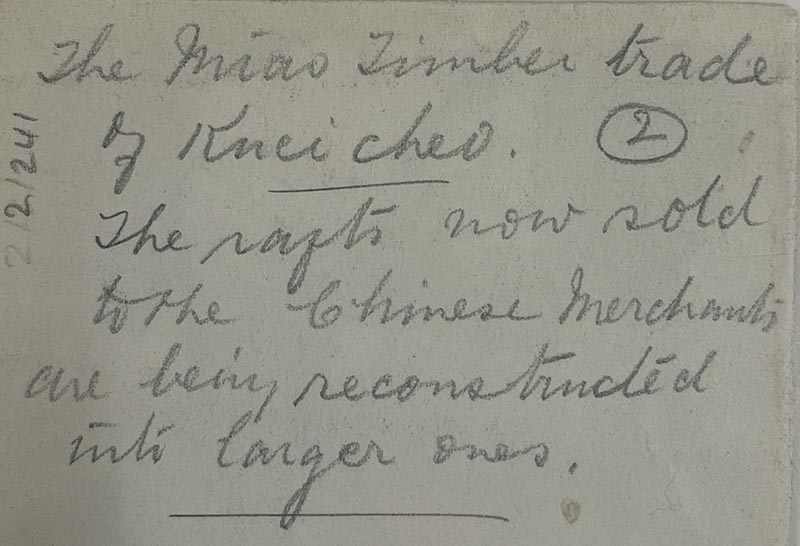 The Miao Timber trade
of Kneicheo. ②
The rafts now sold
to the Chinese Merchants
are being reconstructed
into larger ones.
2/2/241